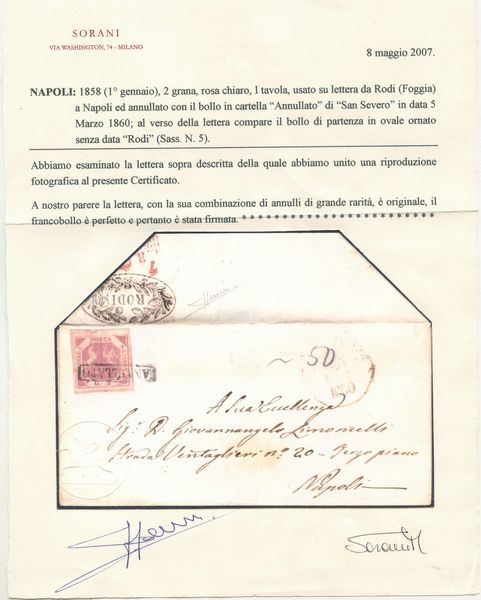 SORANI
VIA WASHINGTON, 74 - MILANO
8 maggio 2007.
NAPOLI: 1858 (1° gennaio), 2 grana, rosa chiaro, I tavola, usato su lettera da Rodi (Foggia)
a Napoli ed annullato con il bollo in cartella “Annullato” di “San Severo” in data 5
Marzo 1860; al verso della lettera compare il bollo di partenza in ovale ornato
senza data “Rodi” (Sass. N. 5).
Abbiamo esaminato la lettera sopra descritta della quale abbiamo unito una riproduzione
fotografica al presente Certificato.
A nostro parere la lettera, con la sua combinazione di annulli di grande rarità, è originale, il
francobollo è perfetto e pertanto è stata firmata. * * * * * * * * * * * * * * * * * * * * * * *
RODI
POSTA
ANNULLATO
~ 50
A Sua Eccellenza
Sig. D. Giovannangelo Limoncelli
Strada Ventaglieri n° 20 - Terzo piano
Napoli